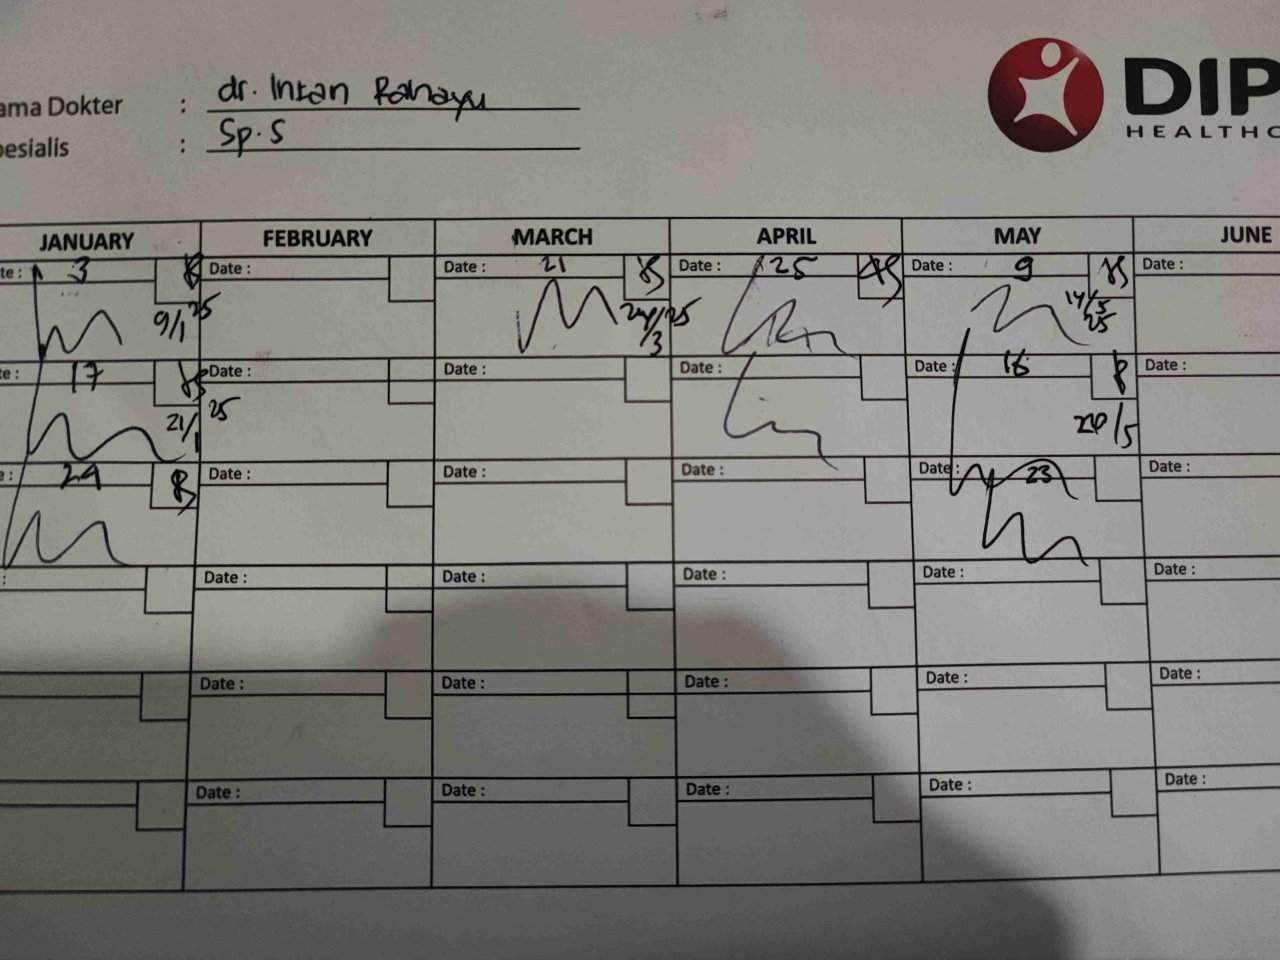 ama Dokter : dr. Intan Rahayu
pesialis : Sp.S
DIP
HEALTHC
JANUARY FEBRUARY MARCH APRIL MAY JUNE
te: 3 Date : Date : 21 Date : 25 Date : 9 Date :
9/1 25 24/3 25 14/5 25
te: 17 Date : Date : Date : Date : 16 Date :
21/1 25 20/5
e: 29 Date : Date : Date : Date : 23 Date :
: Date : Date : Date : Date : Date :
Date : Date : Date : Date : Date :
Date : Date : Date : Date : Date :